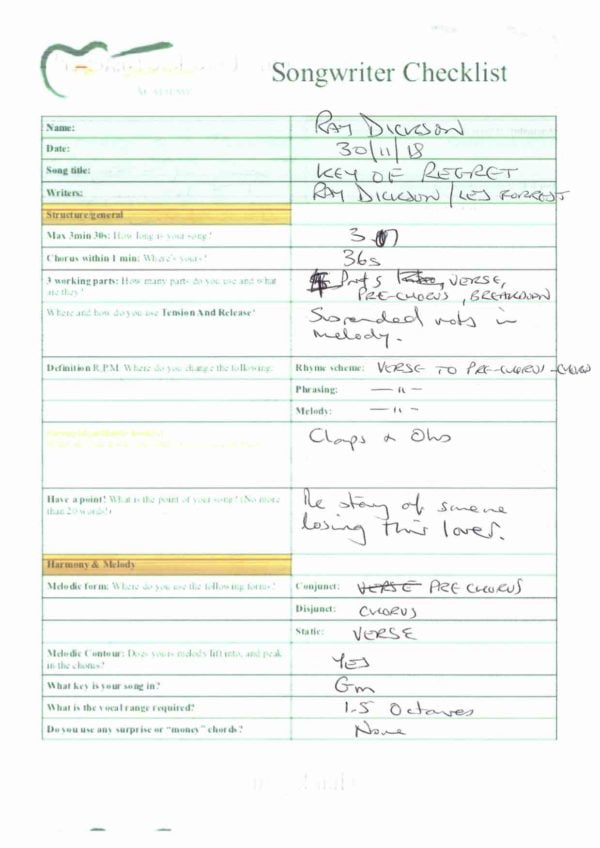 ACADEMY
Songwriter Checklist
Name: RAY DICKSON
Date: 30/11/18
Song title: KEY OF REGRET
Writers: RAY DICKSON / LES FORREST
Structure/general
Max 3min 30s: How long is your song?
Chorus within 1 min: Where's yours? 36s
3 working parts: How many parts do you use and what Parts, VERSE,
are they? PRE-CHORUS, BREAKDOWN
Where and how do you use Tension And Release? Suspended nots in
melody.
Definition R.P.M. Where do you change the following: Rhyme scheme: VERSE TO PRE-CHORUS - CHORUS
Phrasing: — " —
Melody: — " —
Claps & Ohs
Have a point! What is the point of your song? (No more The story of someone
than 20 words!) losing their lover.
Harmony & Melody
Melodic form: Where do you use the following forms? Conjunct: VERSE PRE CHORUS
Disjunct: CHORUS
Static: VERSE
Melodic Contour: Does yours melody lift into, and peak YES
in the chorus?
What key is your song in? Gm
What is the vocal range required? 1.5 Octaves
Do you use any surprise or "money" chords? None